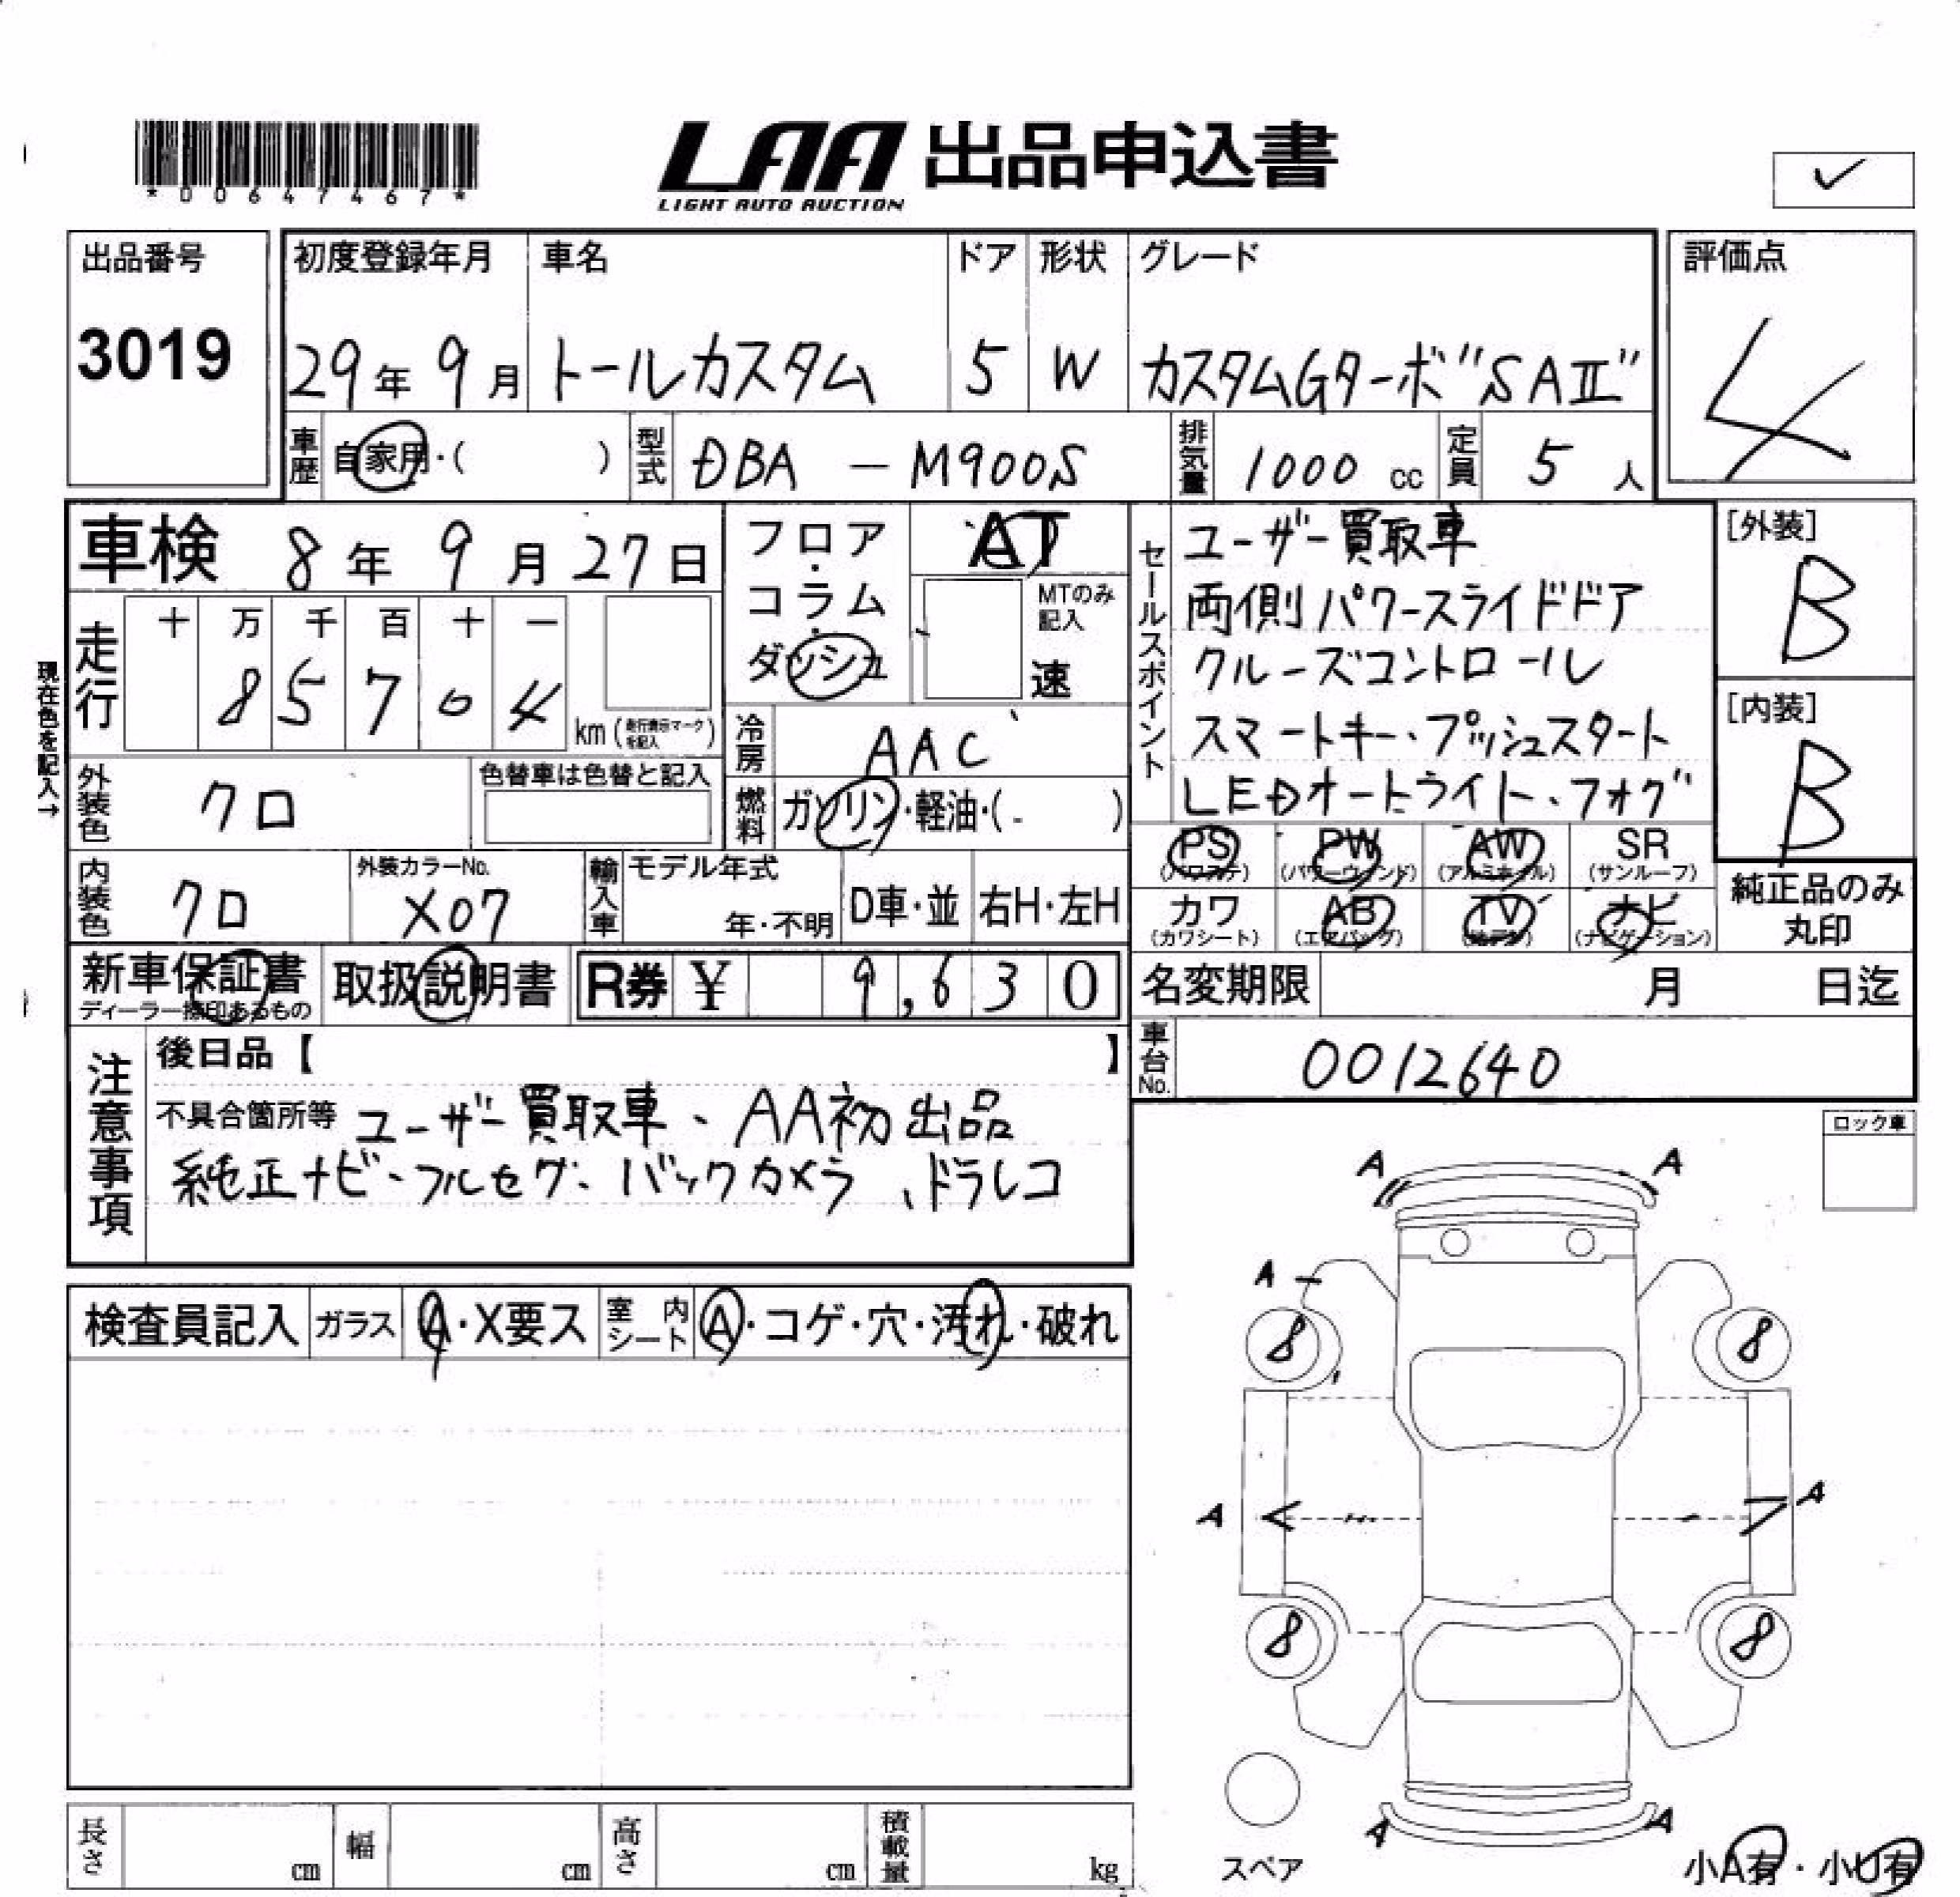 *00647467*
LAA 出品申込書
LIGHT AUTO AUCTION
✓
出品番号
3019
初度登録年月
29年9月
車名
トールカスタム
ドア
5
形状
W
グレード
カスタムGターボ"SAⅡ"
評価点
4
車歴 自家用・( )
型式 DBA - M900S
排気量 1000 cc
定員 5 人
車検 8年9月27日
走行 十 万 千 百 十 一
8 5 7 0 4 km (走行表示マークを記入)
現在色を記入→
外装色 クロ
色替車は色替と記入
内装色 クロ
外装カラーNo.
X07
フロア・コラム・ダッシュ
AT
MTのみ記入
速
冷房 AAC
燃料 ガソリン・軽油・( )
輸入車
モデル年式
年・不明
D車・並
右H・左H
セールスポイント
ユーザー買取車
両側パワースライドドア
クルーズコントロール
スマートキー、プッシュスタート
LEDオートライト、フォグ
[外装]
B
[内装]
B
PS (パワステ)
PW (パワーウィンド)
AW (アルミホイル)
SR (サンルーフ)
カワ (カワシート)
AB (エアバッグ)
TV (地デジ)
ナビ (ナビゲーション)
純正品のみ
丸印
新車保証書
ディーラー捺印あるもの
取扱説明書
R券 ¥ 9,630
名変期限 月 日迄
車台No. 0012640
注意事項
後日品【 】
不具合箇所等 ユーザー買取車、AA初出品
純正ナビ、フルセグ、バックカメラ、ドラレコ
ロック車
検査員記入
ガラス A・X要ス
室内シート A・コゲ・穴・汚れ・破れ
A A
A
8 8
A A
8 8
A A
スペア
小A有・小U有
長さ cm
幅 cm
高さ cm
積載量 kg